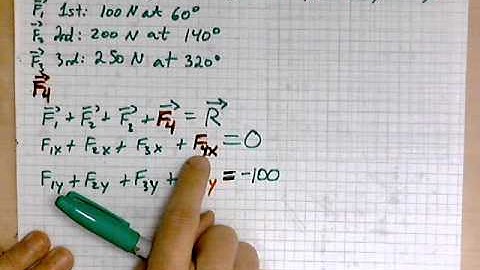 F⃗₁ 1st: 100 N at 60°
F⃗₂ 2nd: 200 N at 140°
F⃗₃ 3rd: 250 N at 320°
F⃗₄
F⃗₁ + F⃗₂ + F⃗₃ + F⃗₄ = R⃗
F₁x + F₂x + F₃x + F₄x = 0
F₁y + F₂y + F₃y + y = -100